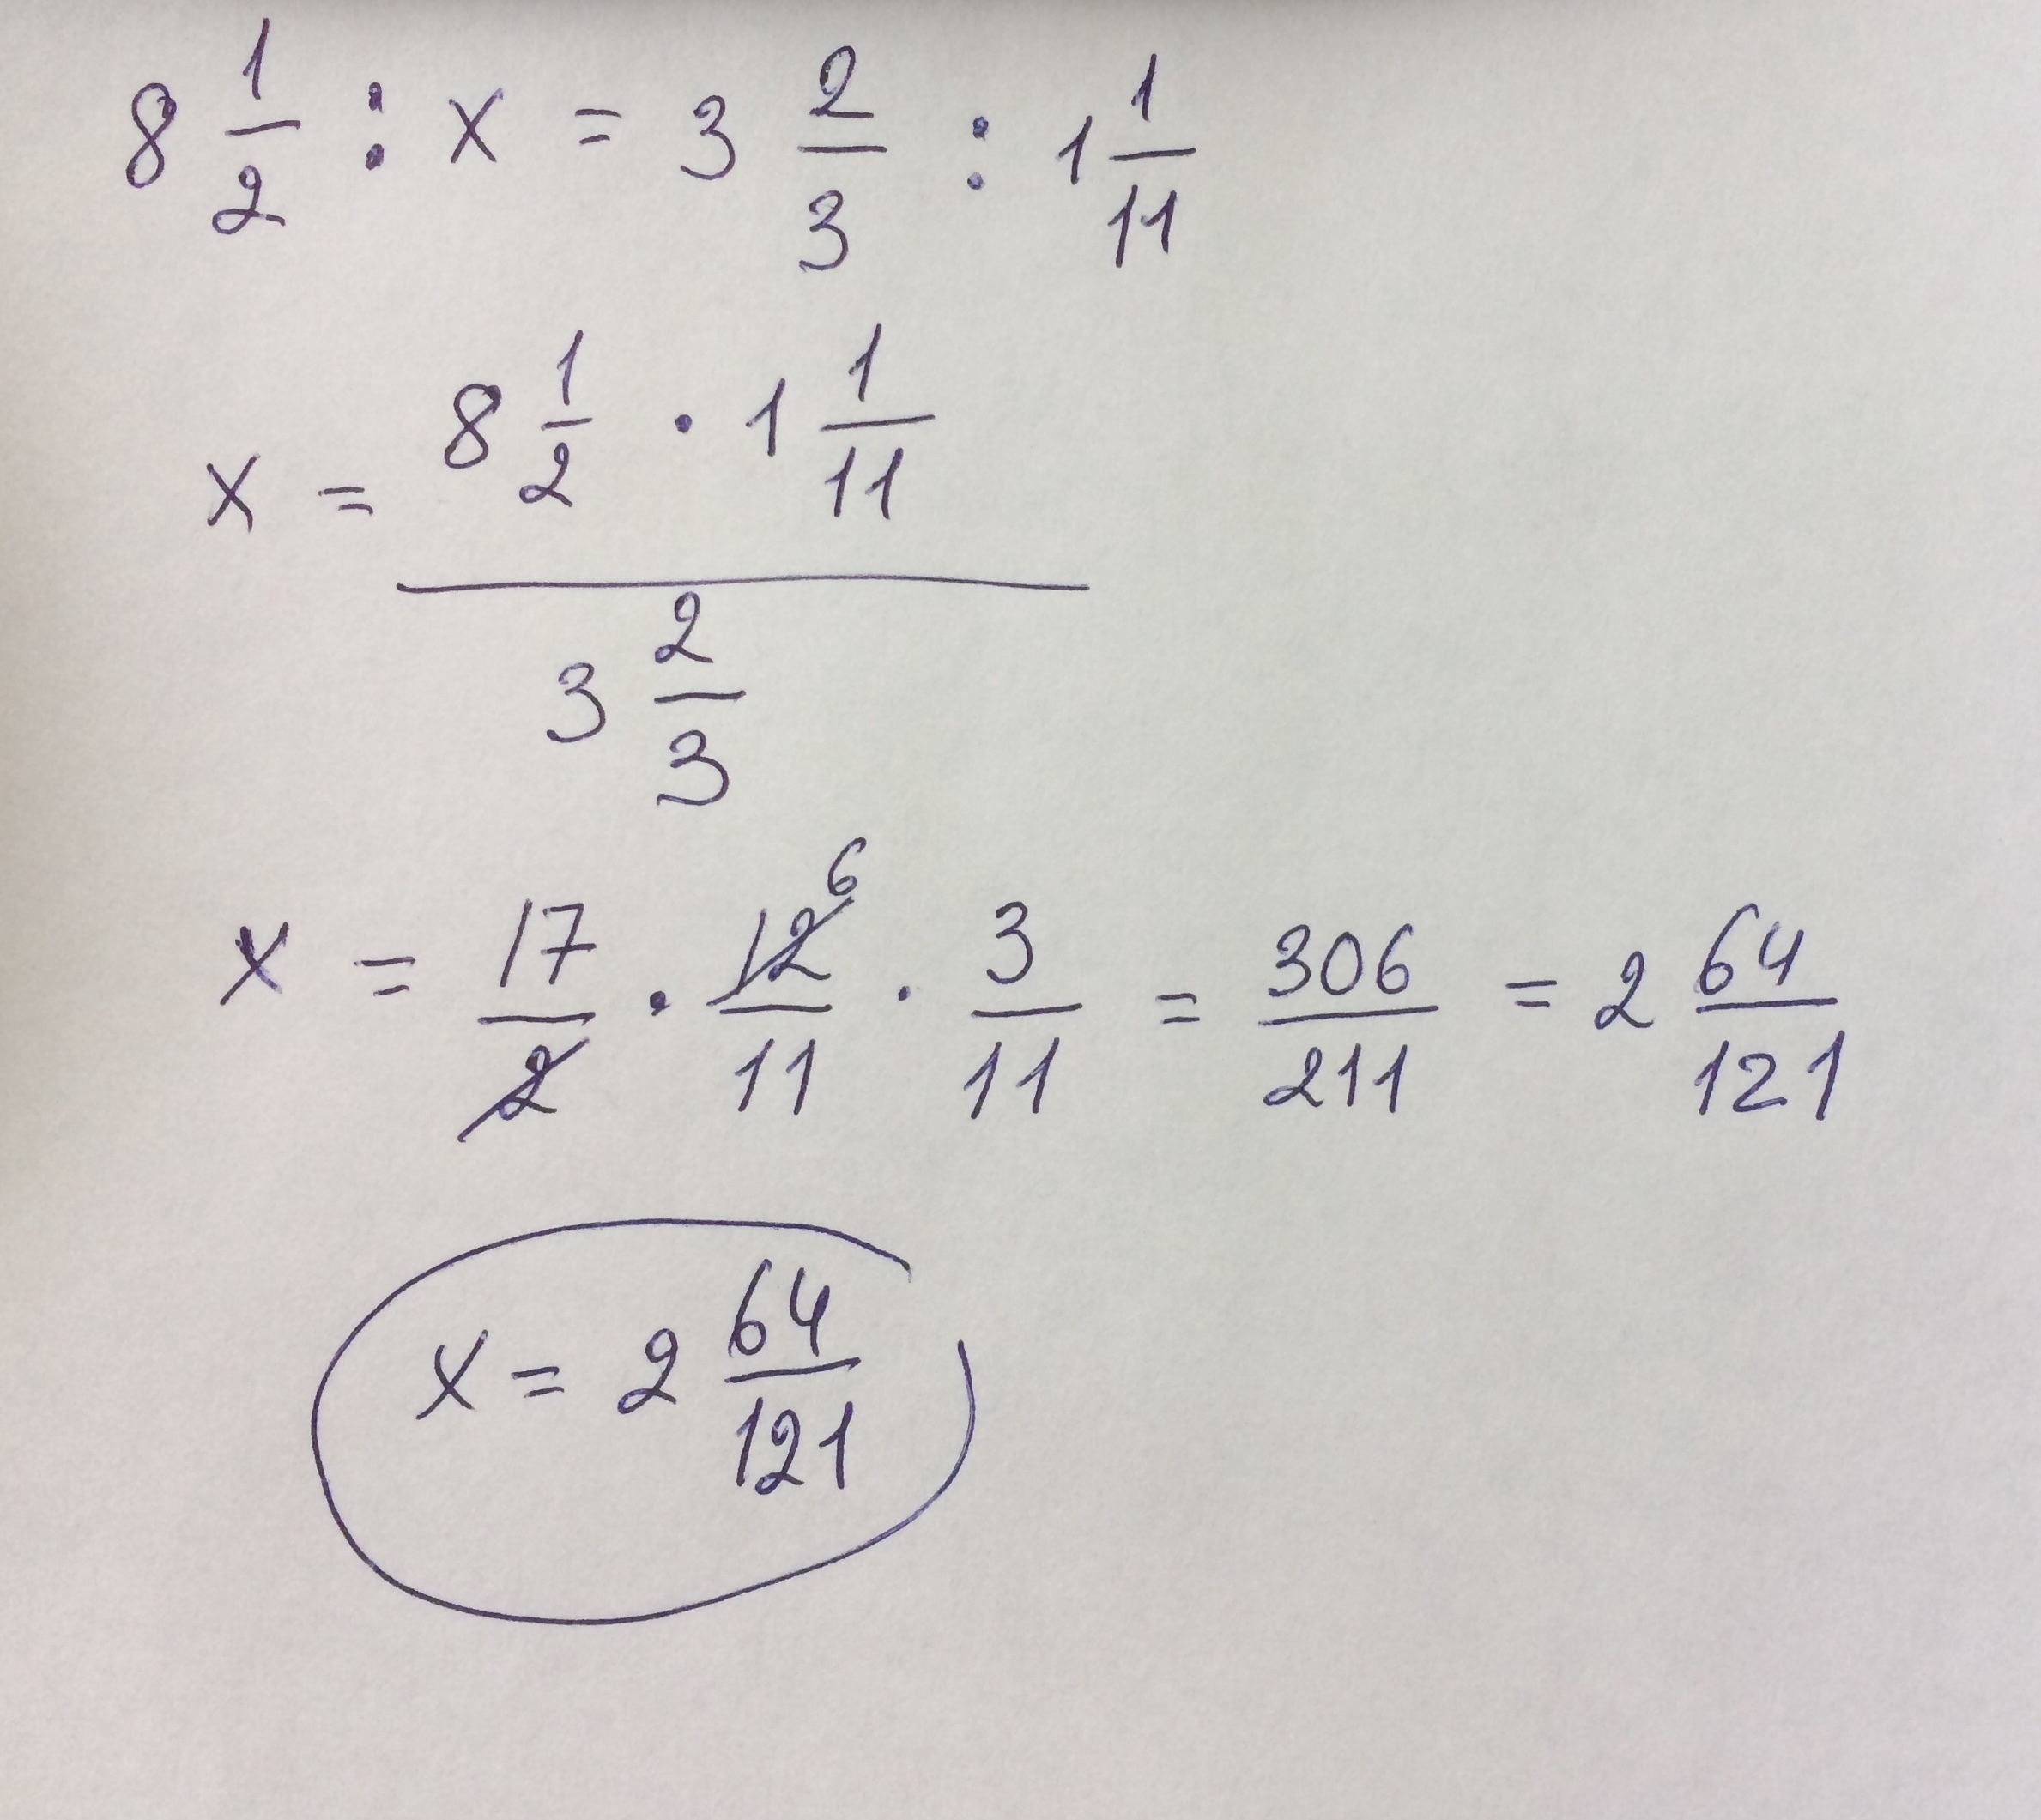 8 1/2 : x = 3 2/3 : 1 1/11
x = (8 1/2 · 1 1/11) / (3 2/3)
x = 17/2 · 12/11 · 3/11 = 306/211 = 2 64/121
6
x = 2 64/121